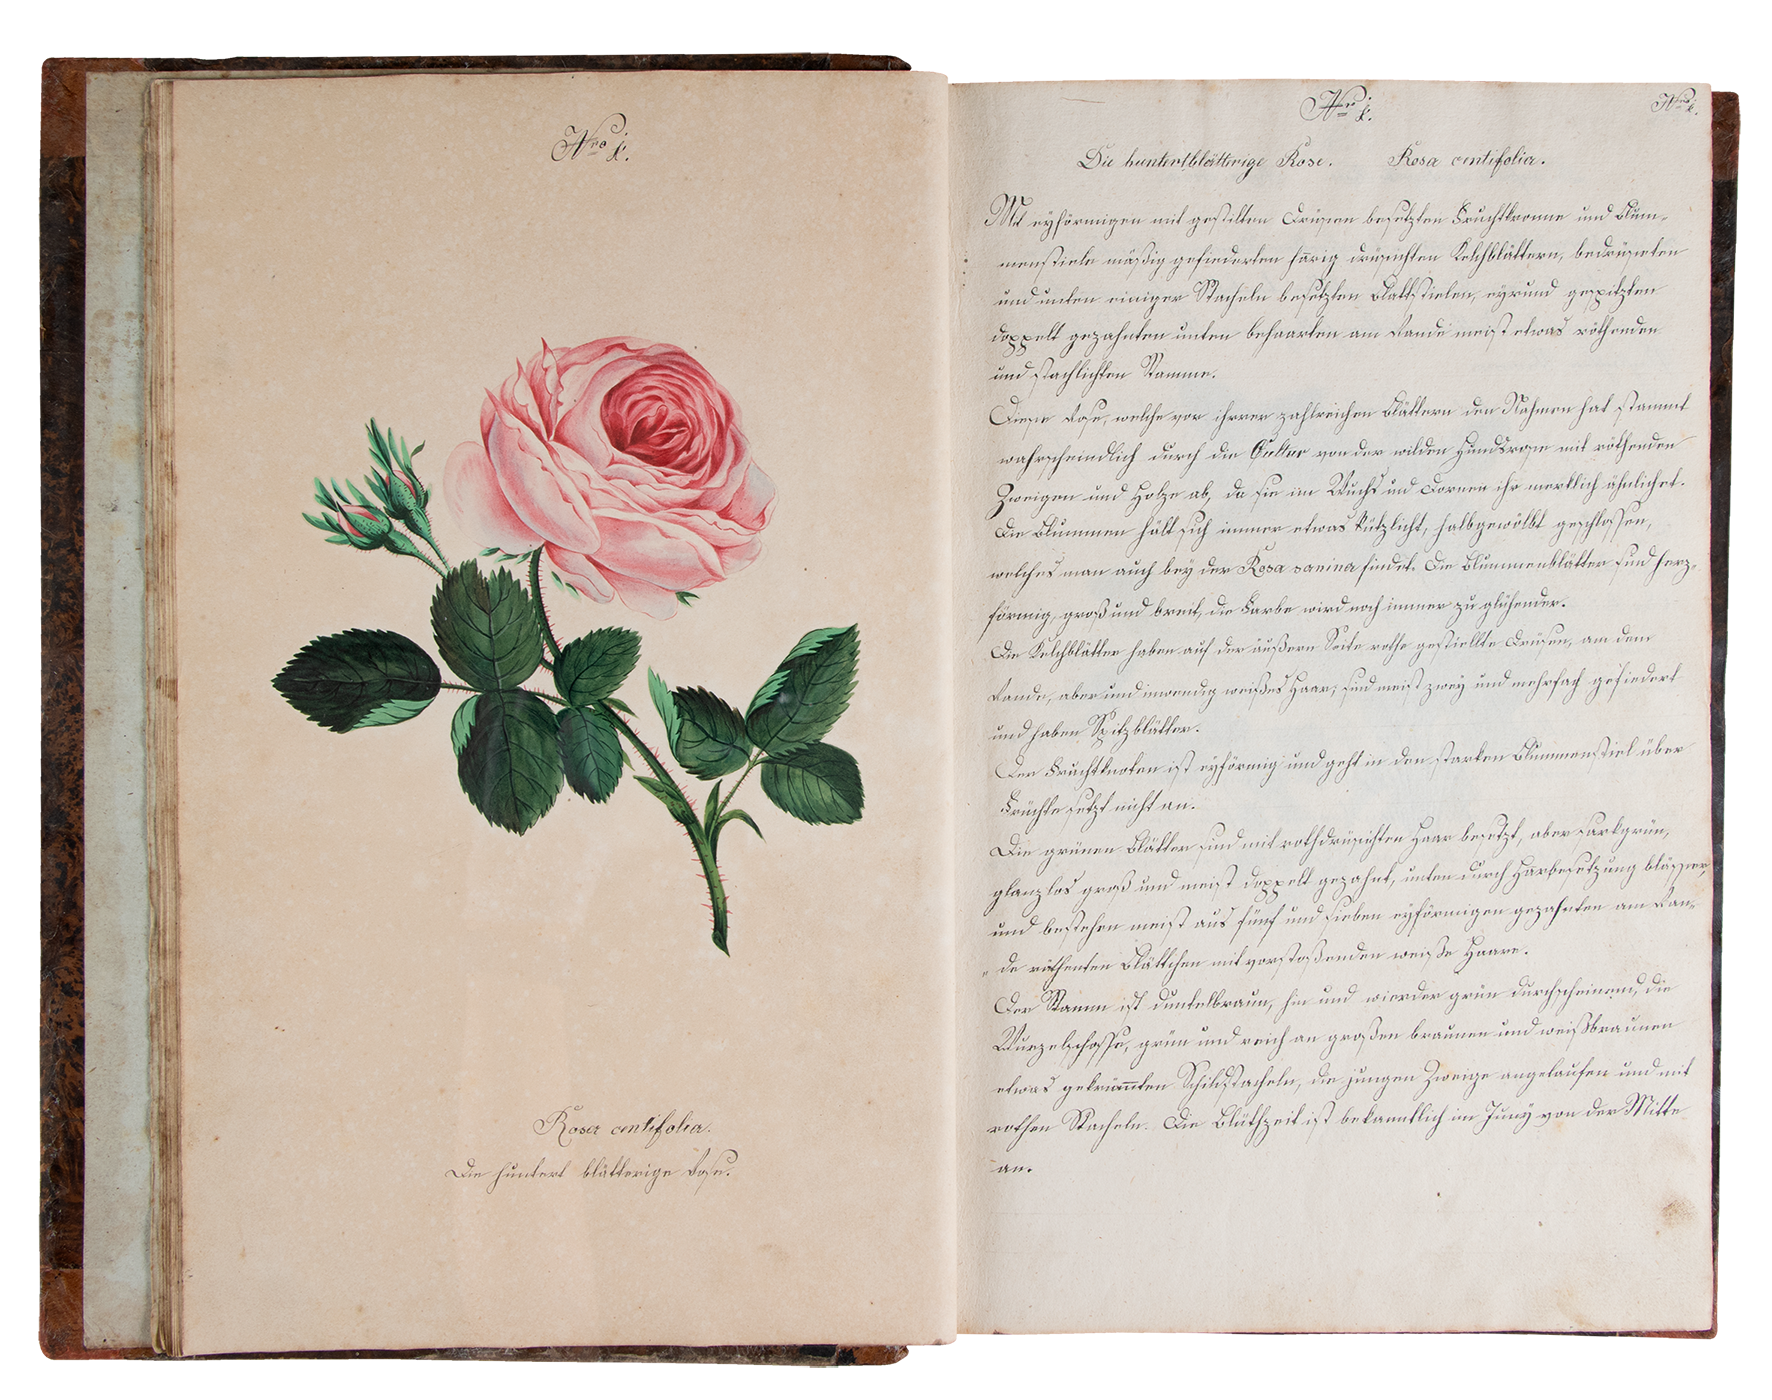 Nro 1.
Rosa centifolia.
Die huntert blätterige Rose.
Nro 1.
Nro 1.
Die huntertblätterige Rose. Rosa centifolia.
Mit eyförmigen mit gestilten Drüsen besetzten Fruchtkronne und Blum-
menstiele mäßig gefiederten harig drüsichten Kelchblättern, bedrüseten
und unten einiger Stacheln besetzten Blattstielen, eyrund gespitzten
doppelt gezahnten unten behaarten am Rande meist etwas röthenden
und stachlichten Stamme.
Diese Rose, welche vor ihrer zahlreichen Blättern den Nahmen hat stammt
wahrscheindlich durch die Cultur von der wilden Hundsrose mit röthenden
Zweigen und Holze ab, da sie im Wuchs und Dornen ihr merklich ähnlichet.
Die Blummen hält sich immer etwas, halbgewölbt geschlossen,
welches man auch bey der Rosa canina findet. Die Blummenblätter sind herz-
förmig, groß und breit, die Farbe wird noch immer zu glühender.
Die Kelchblätter haben auf der äußern Seite rothe gestiellte Drüsen, am dem
Rande, aber und inwendig weißes Haar, sind meist zwey und mehrfach gefiedert
und haben Spitzblätter.
Der Fruchtknoten ist eyförmig und geht in den starken Blummenstiel über
Früchte setzt nicht an.
Die grünen Blätter sind mit rothdrüsichten Haar besetzt, aber sarkgrün,
glanzlos groß und meist doppelt gezahnt, unten durch Harbesetzung blässer,
und bestehen meist aus fünf und sieben eyförmigen gezahnten am Ran-
de röthenten Blättchen mit vorstoßenden weiße Haare.
Der Stamm ist dunkelbraun, hin und wierder grün durchscheinend, die
Wurzelschosse, grün und reich an großen braunen und weißbraunen
etwas gekrümten Schildstacheln, die jungen Zweige angelaufen und mit
rothen Stacheln. Die Blüthzeit ist bekanntlich im Juny von der Mitte
an.